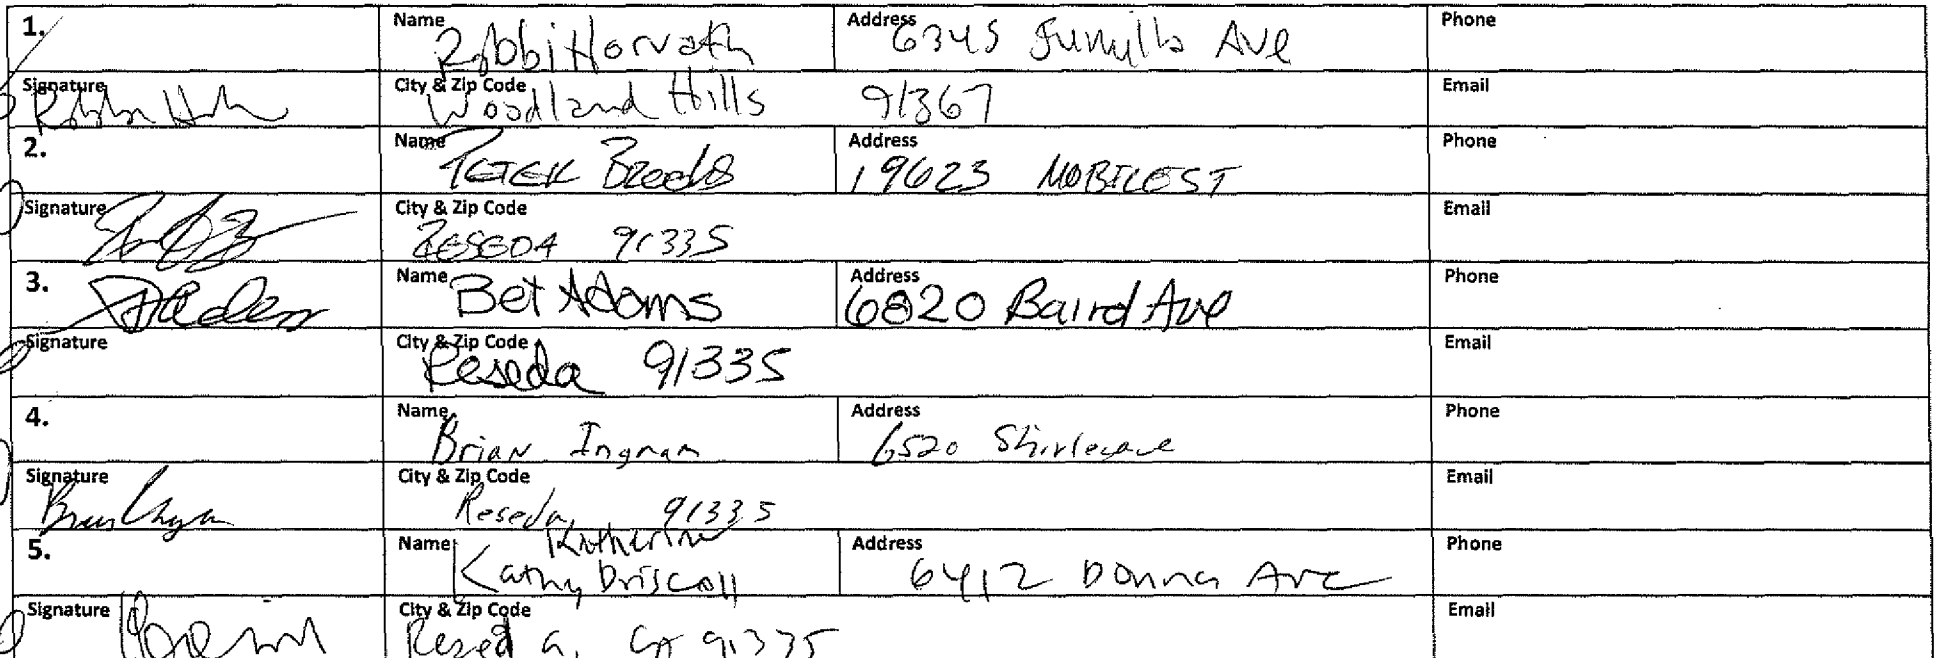 1. Name Robbi Horvath Address 6345 Ave Phone
Signature City & Zip Code Woodland Hills 91367 Email
2. Name Peter Brooks Address 19623 MOBILE ST Phone
Signature City & Zip Code RESEDA 91335 Email
3. Name Bet Adams Address 6820 Baird Ave Phone
Signature City & Zip Code Reseda 91335 Email
4. Name Brian Ingram Address 6520 Phone
Signature City & Zip Code Reseda, 91335 Email
Katherine
5. Name Kathy Driscoll Address 6412 Donna Ave Phone
Signature City & Zip Code Reseda, CA 91335 Email